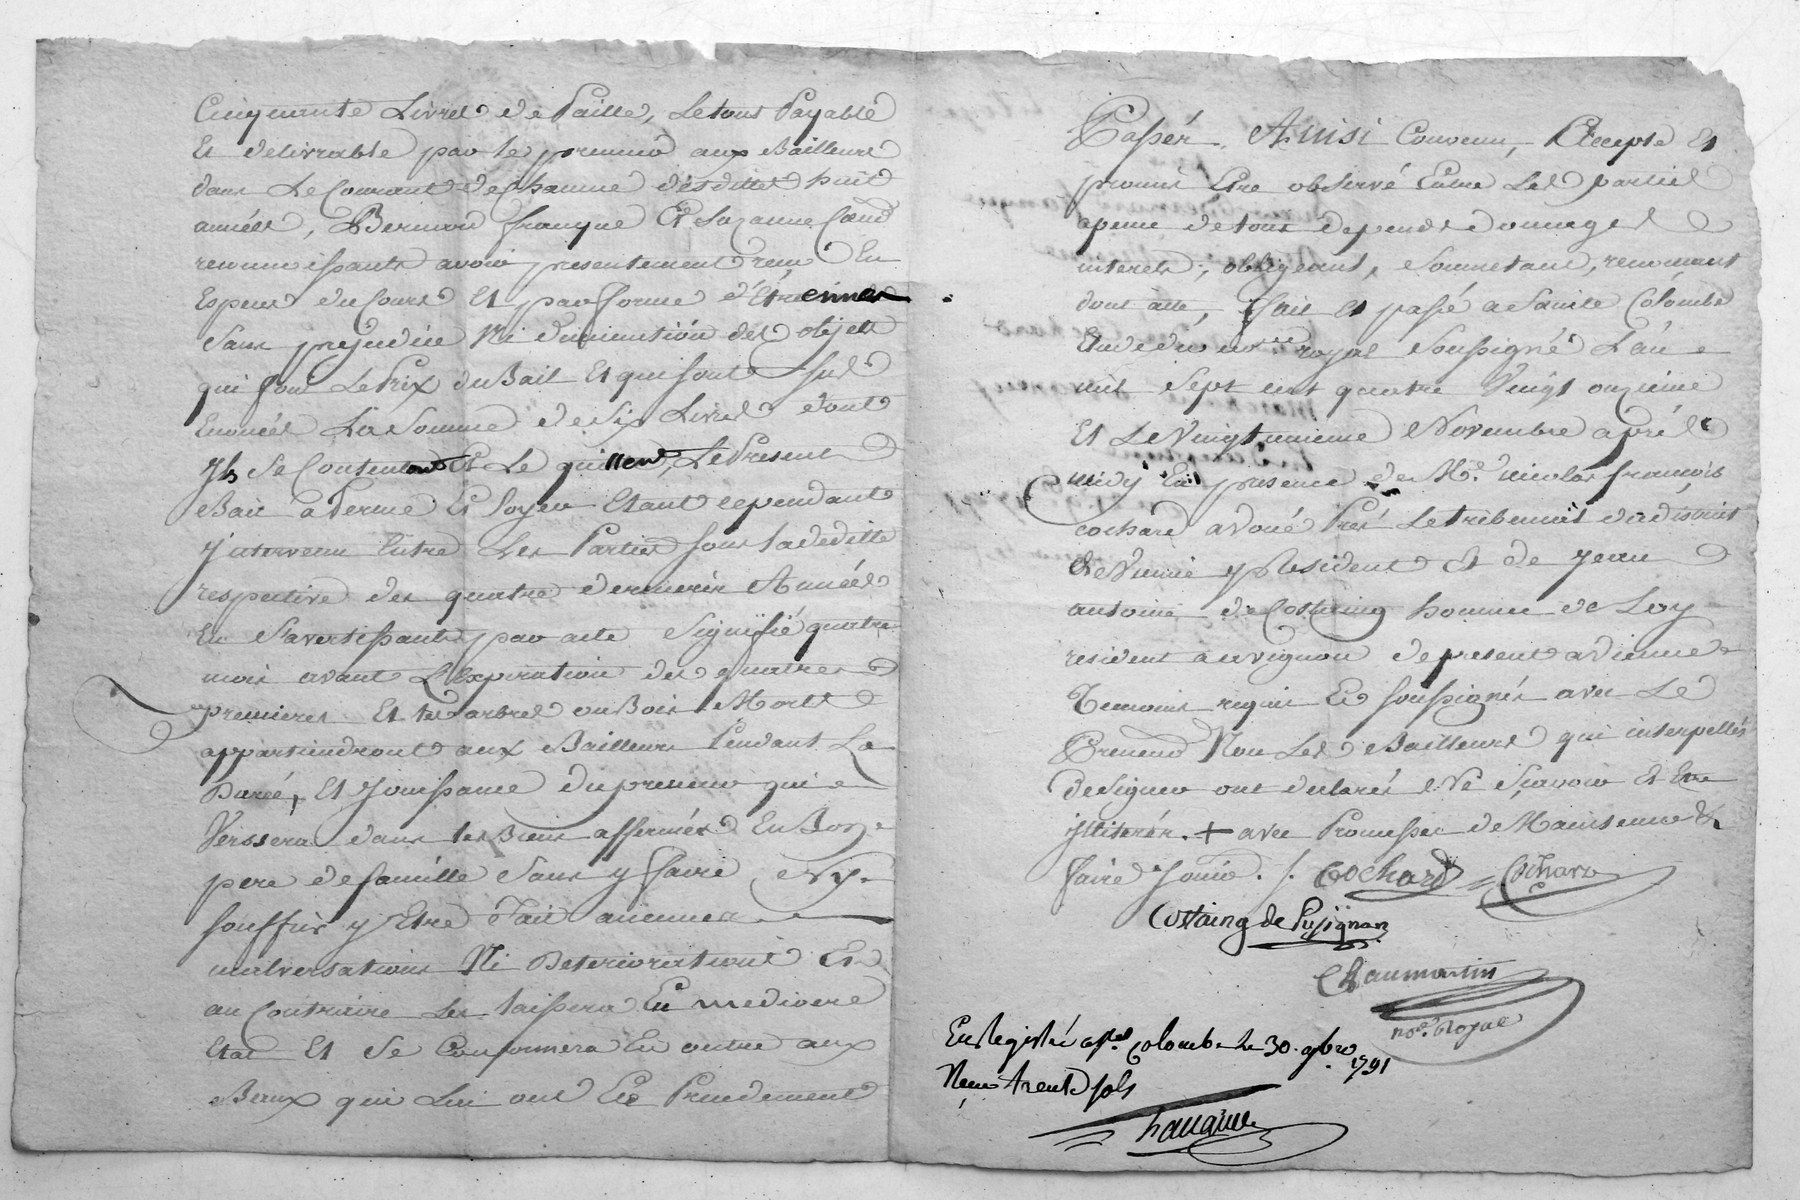 Cinquante Livres de Paille, Le tout Payable
Et delivrable par le preneur aux Bailleurs
dans Le Courant de Chacune desdittes huit
années, Bernard franque Et Suzanne
reconnoissants avoir presentement reçu En
Especes du Cours Et par forme d'Etrennes
Sans prejudice Ni diminution des objets
qui font Le Prix du Bail Et qui sont sus
Enoncés La Somme de Six Livres dont
Ils Se Contentent Et Le quittent, Le Present
Bail a ferme Et Loyer Etant cependant
Intervenu Entre Les Parties sous la deditte
respective des quatre dernieres Années
En s'avertissant par acte Signifié quatre
mois avant L'Expiration des quatres
premieres Et les arbres ou Bois Morts
appartiendront aux Bailleurs Pendant La
Durée, Et Jouissance du preneur qui
Versera dans les Biens affermés En Bon
pere de famille Sans y faire, Ny
souffrir y Etre Fait aucunes
malversations Ni Deteriorations Et
au Contraire Les laissera En mediocre
Etat Et Se Conformera En outre aux
Beaux qui Lui ont Eté Precedement
Passés. Ainsi Convenu, Accepté Et
promis Etre observé Entre Les parties
a peine de tous depends domages
interets, obligeant, Soumetant, renoncant
dont acte, Fait Et passé a Sainte Colombe
Etude du no.re royal Soussigné L'an
mil Sept cent quatre Vingt onzieme
Et Le Vingt unieme Novembre après
midy En presence de M.e nicolas françois
cochard avoué Près Le tribunal du district
de Vienne y Resident Et de jean
antoine de Costaing homme de Loy
resident a avignon de present a Vienne
Temoins requis Et soussignés avec Le
Preneur Non Les Bailleurs qui interpellés
de Signer ont declarés Ne Sçavoir Et Etre
illiterés. + avec Promesses de Maintenue &
faire Jouir. /. Cochard Cochard
Costaing de Pusignan
Chaumartin
no.re Royal
Enregistré a s.te Colombe le 30. 9bre 1791
Reçu trente sols